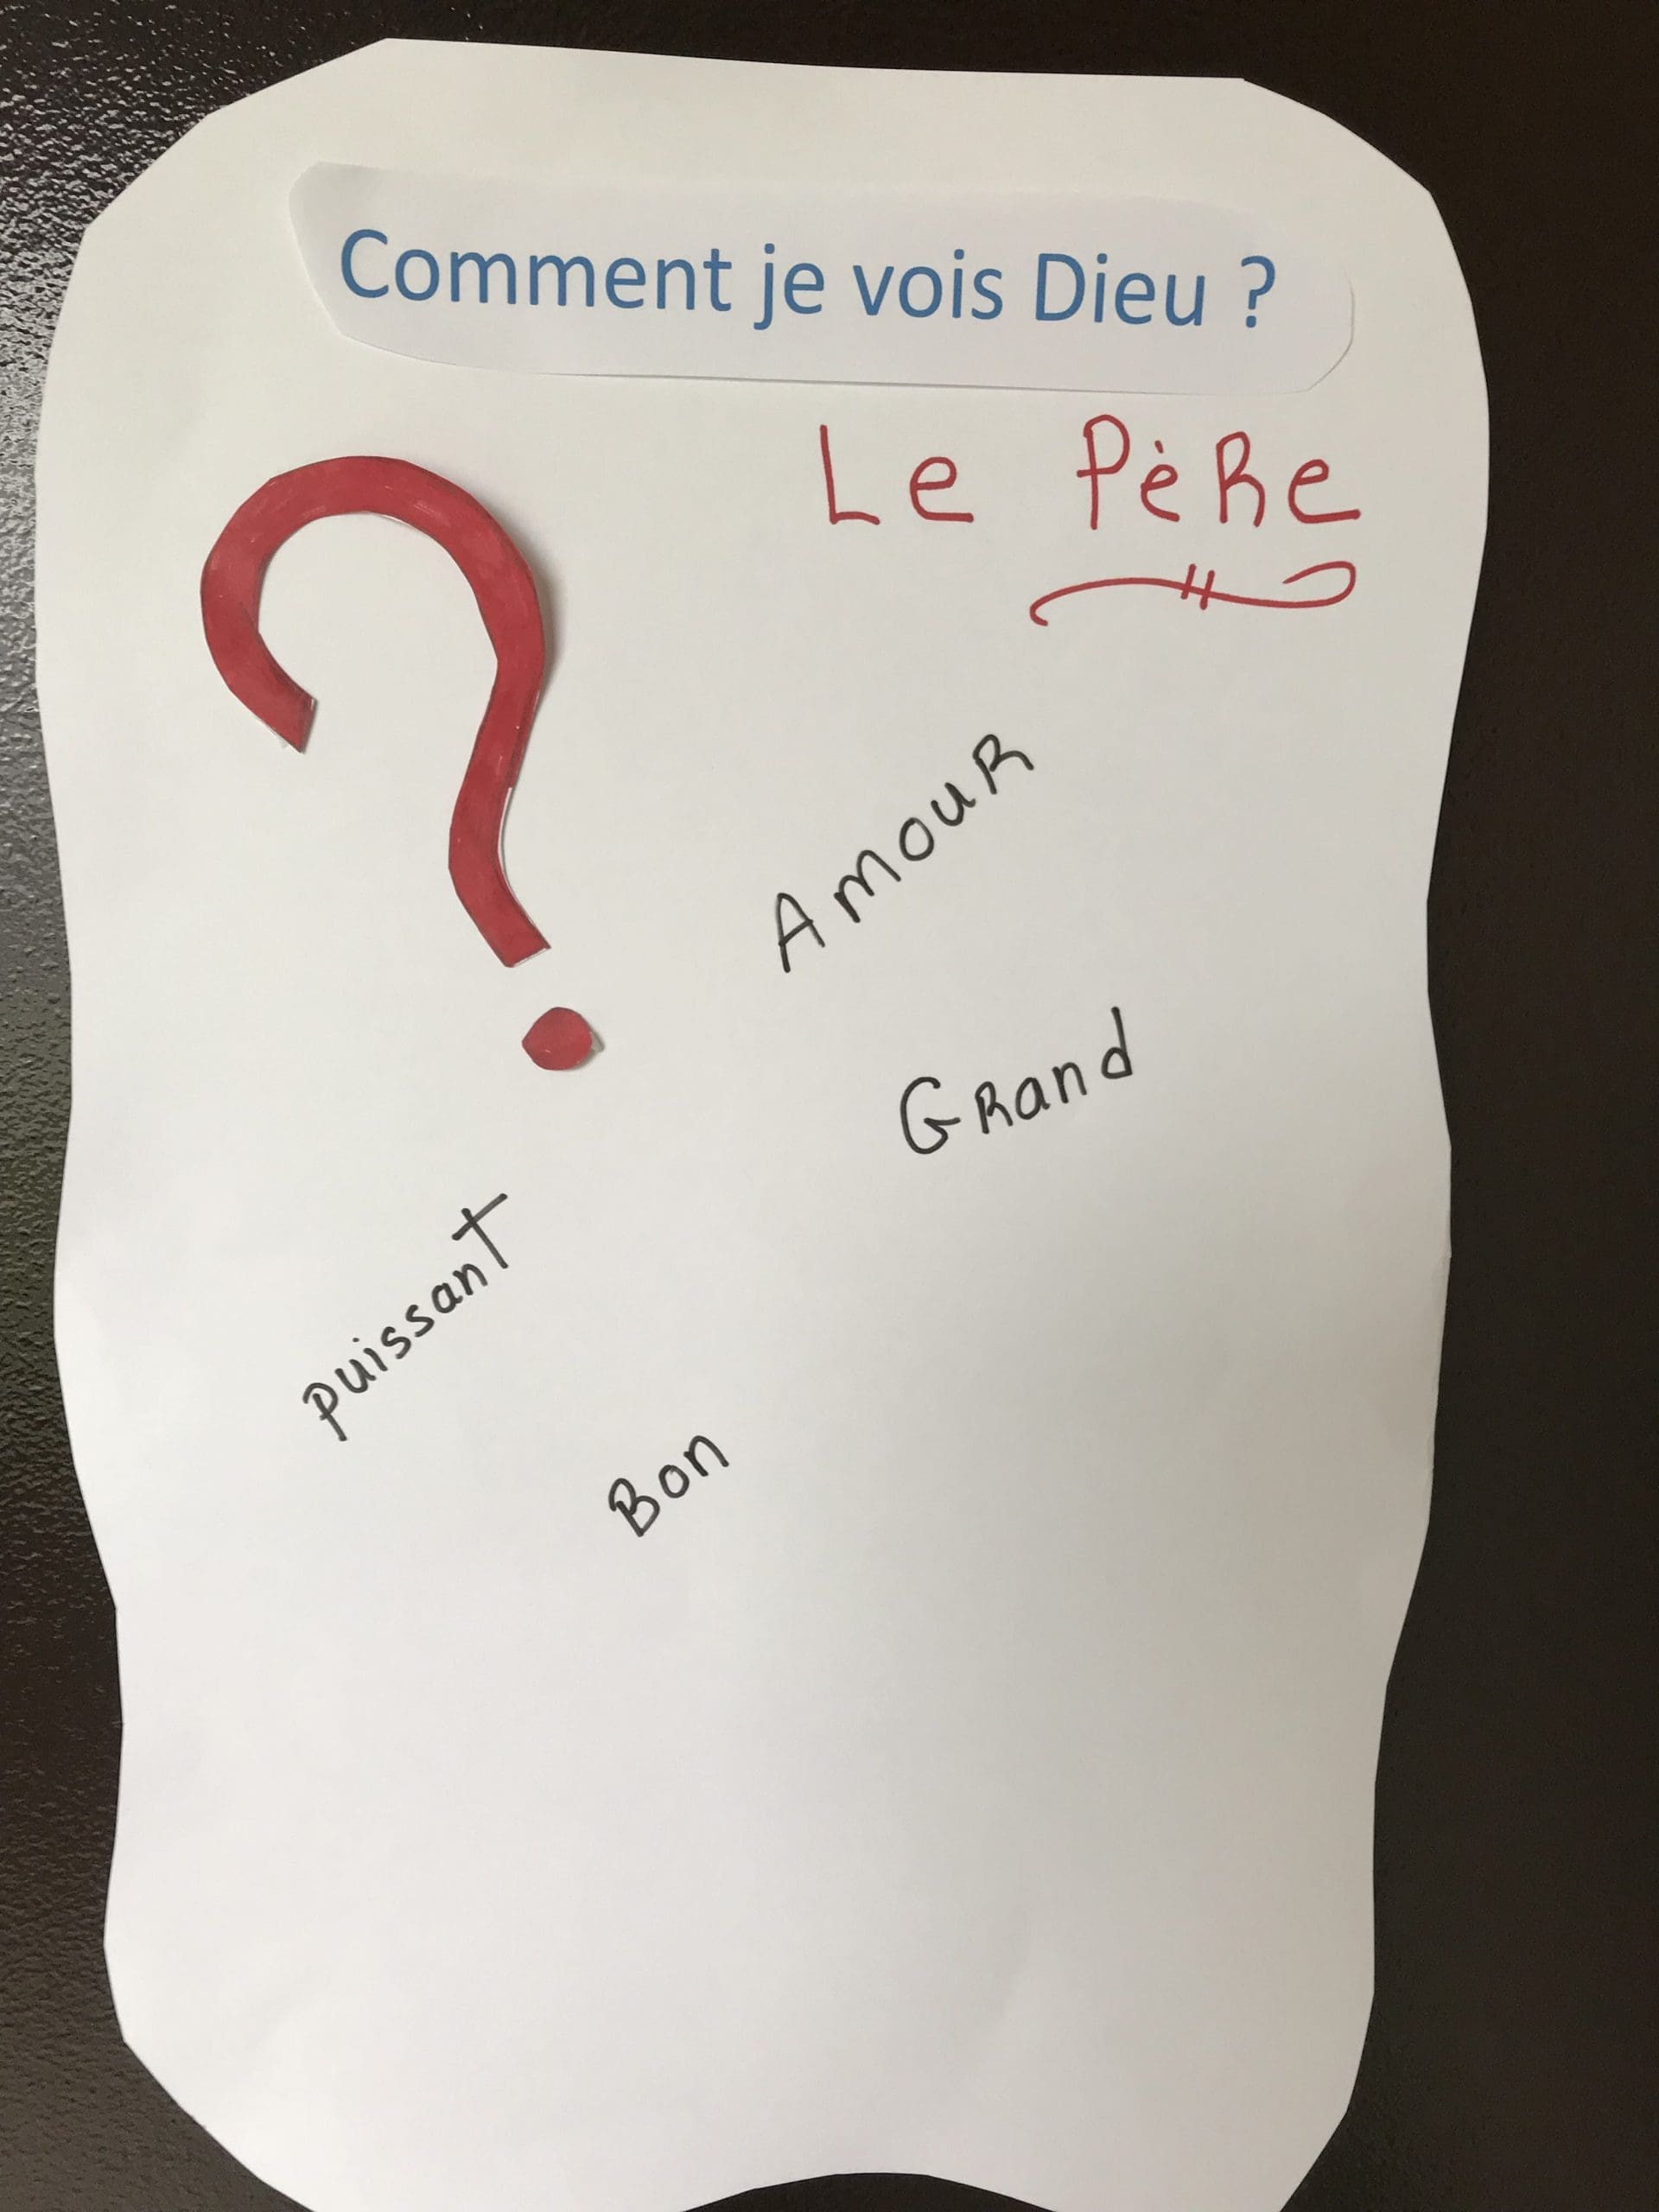 Comment je vois Dieu ?
Le PèRe
AmouR
GRand
puissanT
Bon